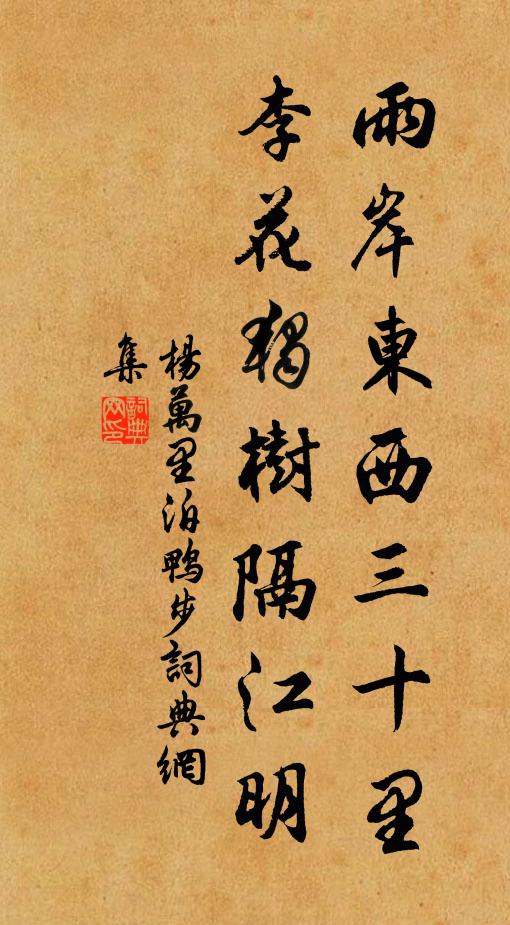 兩岸東西三十里
李花獨樹隔江明
楊萬里泊鴨步詞典網
集
詞典網印